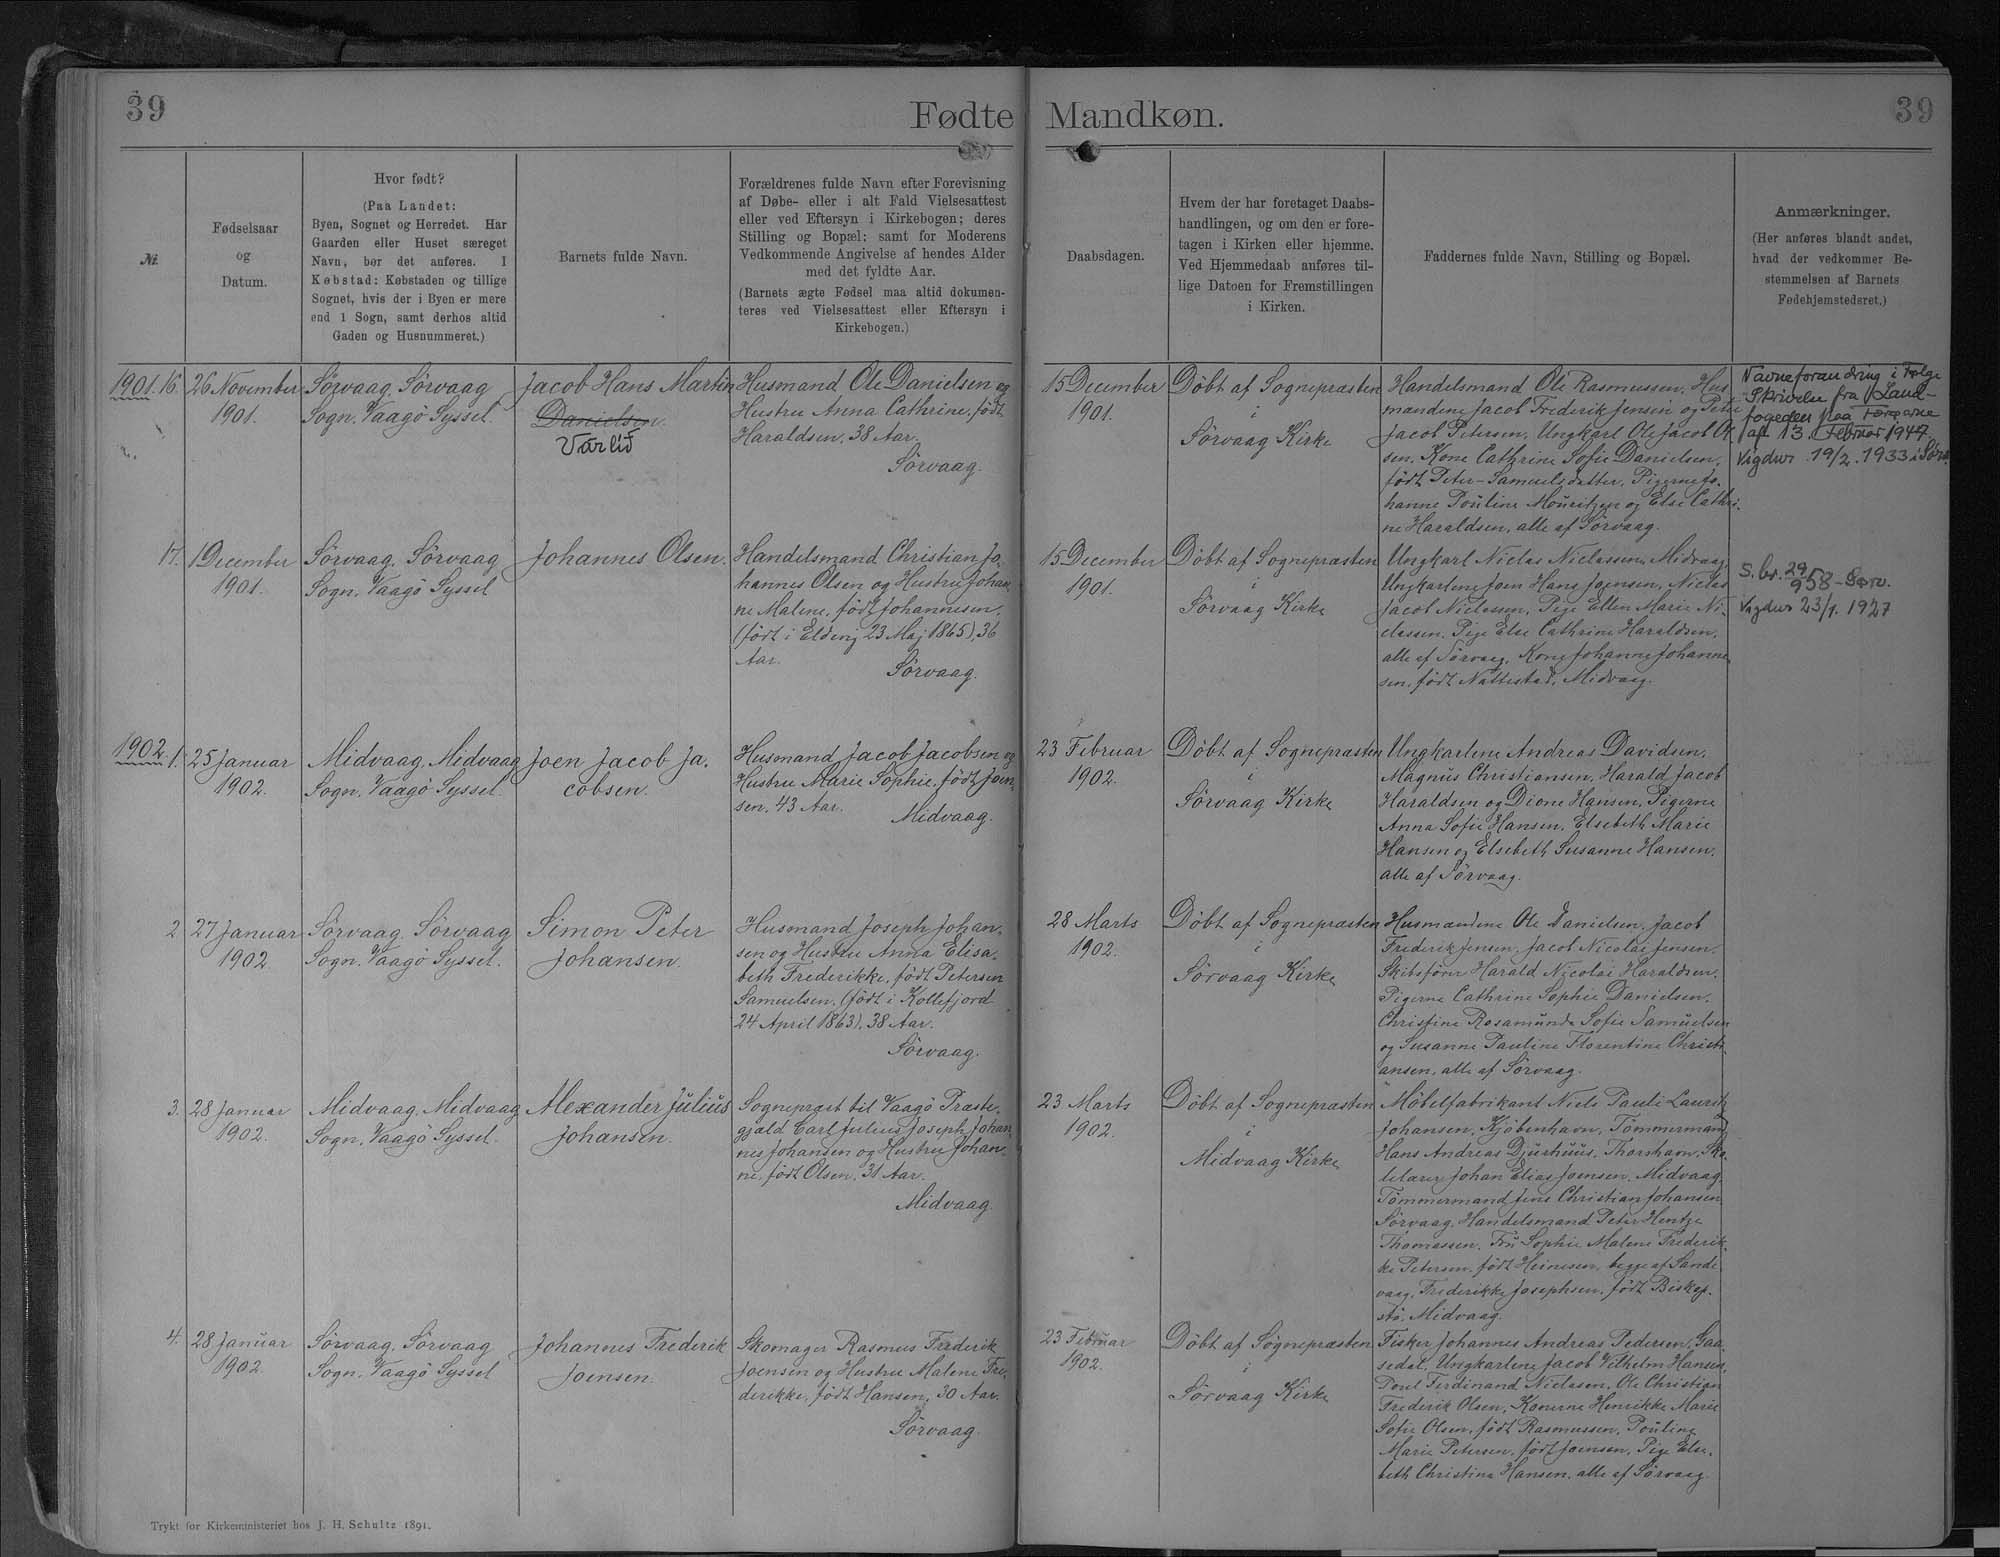 39
Fødte Mandkøn.
39
Nr.
Fødselsaar
og
Datum.
Hvor født?
(Paa Landet:
Byen, Sognet og Herredet. Har
Gaarden eller Huset særeget
Navn, bør det anføres. I
Købstad: Købstaden og tillige
Sognet, hvis der i Byen er mere
end 1 Sogn, samt derhos altid
Gaden og Husnummeret.)
Barnets fulde Navn.
Forældrenes fulde Navn efter Forevisning
af Døbe- eller i alt Fald Vielsesattest
eller ved Eftersyn i Kirkebogen; deres
Stilling og Bopæl; samt for Moderens
Vedkommende Angivelse af hendes Alder
med det fyldte Aar.
(Barnets ægte Fødsel maa altid dokumen-
teres ved Vielsesattest eller Eftersyn i
Kirkebogen.)
Daabsdagen.
Hvem der har foretaget Daabs-
handlingen, og om den er fore-
tagen i Kirken eller hjemme.
Ved Hjemmedaab anføres til-
lige Datoen for Fremstillingen
i Kirken.
Faddernes fulde Navn, Stilling og Bopæl.
Anmærkninger.
(Her anføres blandt andet,
hvad der vedkommer Be-
stemmelsen af Barnets
Fødehjemstedsret.)
1901. 16.
26 November
1901.
Sörvaag, Sörvaag
Sogn, Vaagö Syssel.
Jacob Hans Martin
Danielsen
Varlið
Husmand Ole Danielsen og
Hustru Anna Cathrine, født
Haraldsen, 38 Aar.
Sörvaag.
15 December
1901.
Döbt af Sognepræsten
i
Sörvaag Kirke
Handelsmand Ole Rasmussen, Hus
mændene Jacob Frederik Jensen og Peter
Jacob Petersen, Ungkarl Ole Jacob Ol
sen, Kone Cathrine Sofie Danielsen,
født Peter-Samuelsdatter, Pigerne Jo-
hanne Pouline Mouritzen og Else Cathri-
ne Haraldsen, alle af Sörvaag.
Navneforandring i Følge
Skrivelse fra Land-
fogeden paa Færøerne
af 13. Februar 1947.
Vigdur 19/2. 1933 i Sørv.
17.
1 December
1901.
Sörvaag, Sörvaag
Sogn, Vaagö Syssel
Johannes Olsen.
Handelsmand Christian Jo-
hannes Olsen og Hustru Johan-
ne Malene, født Johannesen,
(født i Eldevig 23 Maj 1865), 36
Aar.
Sörvaag.
15 December
1901.
Döbt af Sognepræsten
i
Sörvaag Kirke
Ungkarl Niclas Niclassen, Midvaag
Ungkarlene Joen Hans Joensen, Niclas
Jacob Niclassen, Pige Ellen Marie Ni-
classen, Pige Else Cathrine Haraldsen,
alle af Sörvaag, Kone Johanne Johanne
sen, født Nattestad, Midvaag.
S. br. 29/9 58 - Sørv.
Vigdur 23/1. 1927
1902. 1.
25 Januar
1902.
Midvaag, Midvaag
Sogn, Vaagö Syssel.
Joen Jacob Ja-
cobsen.
Husmand Jacob Jacobsen og
Hustru Marie Sophie, født Joen-
sen, 43 Aar.
Midvaag.
23 Februar
1902.
Döbt af Sognepræsten
i
Sörvaag Kirke
Ungkarlene Andreas Davidsen,
Magnus Christiansen, Harald Jacob
Haraldsen og Dione Hansen, Pigerne
Anna Sofie Hansen, Elsebeth Marie
Hansen og Elsebeth Susanne Hansen,
alle af Sörvaag.
2
27 Januar
1902
Sörvaag, Sörvaag
Sogn, Vaagö Syssel.
Simon Peter
Johansen.
Husmand Joseph Johan-
sen og Hustru Anna Elisa-
beth Frederikke, født Petersen
Samuelsen, (født i Kollefjord
24 April 1863), 38 Aar.
Sörvaag.
28 Marts
1902.
Döbt af Sognepræsten
i
Sörvaag Kirke
Husmændene Ole Danielsen, Jacob
Frederik Jensen, Jacob Nicolai Jensen,
Skibsförer Harald Nicolai Haraldsen,
Pigerne Cathrine Sophie Danielsen,
Christine Rosamunda Sofie Samuelsen
og Susanne Pauline Florentine Christi
ansen, alle af Sörvaag.
3.
28 Januar
1902.
Midvaag, Midvaag
Sogn, Vaagö Syssel.
Alexander Julius
Johansen.
Sognepræst til Vaagö Præste-
gjæld Carl Julius Joseph Johan-
nes Johansen og Hustru Johan-
ne, født Olsen, 31 Aar.
Midvaag.
23 Marts
1902.
Döbt af Sognepræsten
i
Midvaag Kirke
Möbelfabrikant Niels Pauli Lauritz
Johansen, Kjöbenhavn, Tömmermand
Hans Andreas Djurhuus, Thorshavn, Sko-
lelærer Johan Elias Joensen, Midvaag
Tömmermand Jens Christian Johansen
Sörvaag, Handelsmand Peter Hentze
Thomassen, Fru Sophie Malene Frederik-
ke Petersen, født Heinesen, begge af Sande
vaag, Frederikke Josephsen, født Biskop-
stö, Midvaag.
4.
28 Januar
1902.
Sörvaag, Sörvaag
Sogn, Vaagö Syssel
Johannes Frederik
Joensen.
Skomager Rasmus Frederik
Joensen og Hustru Malene Fre-
derikke, født Hansen, 30 Aar.
Sörvaag.
23 Februar
1902.
Döbt af Sognepræsten
i
Sörvaag Kirke
Fisker Johannes Andreas Pedersen, Gaa-
sedal, Ungkarlene Jacob Vilhelm Hansen,
Poul Ferdinand Niclasen, Ole Christian
Frederik Olsen, Konerne Henrikke Marie
Sofie Olsen, født Rasmussen, Pouline
Marie Petersen, født Joensen, Pige Else-
beth Christina Hansen, alle af Sörvaag.
Trykt for Kirkeministeriet hos J. H. Schultz 1891.